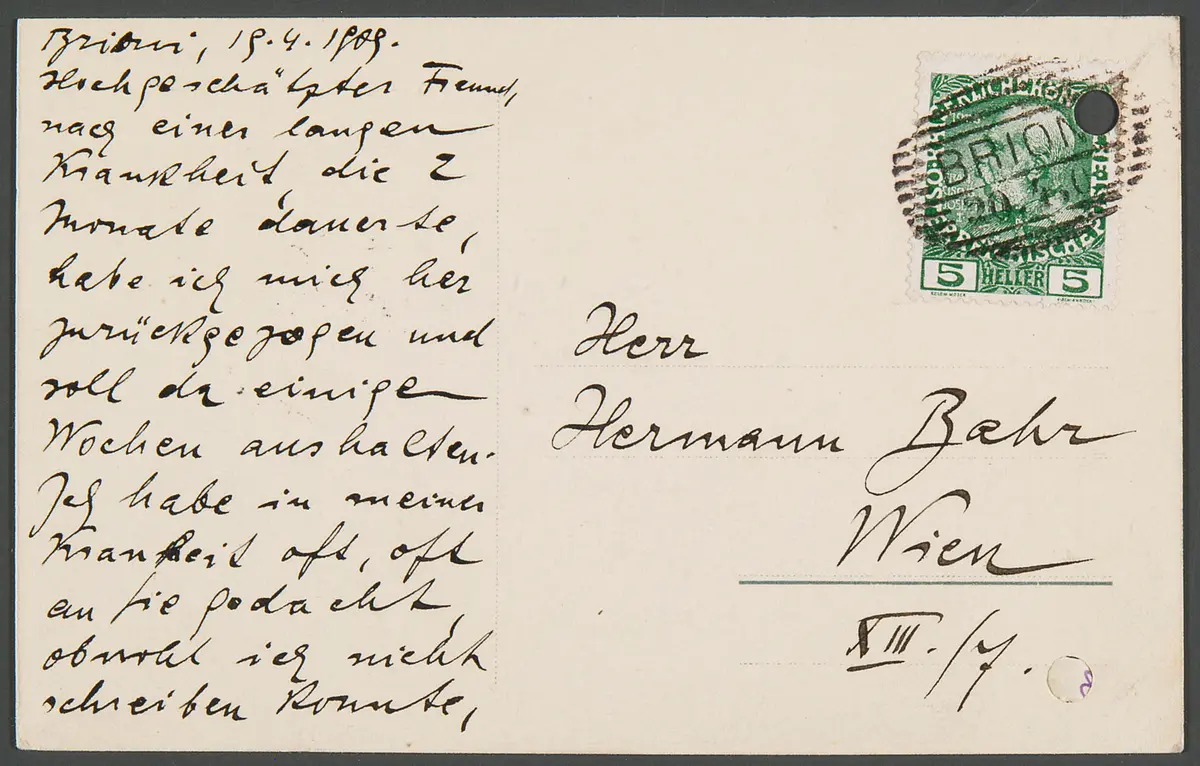 Brioni, 19.4.1909.
Hochgeschätzter Freund,
nach einer langen
Krankheit, die 2
Monate dauerte,
habe ich mich her
zurückgezogen und
soll da einige
Wochen aushalten.
Ich habe in meiner
Krankeit oft, oft
an Sie gedacht,
obwohl ich nicht
schreiben konnte,
BRIONI
20
5 HELLER 5
Herr
Hermann Bahr
Wien
XIII./7.